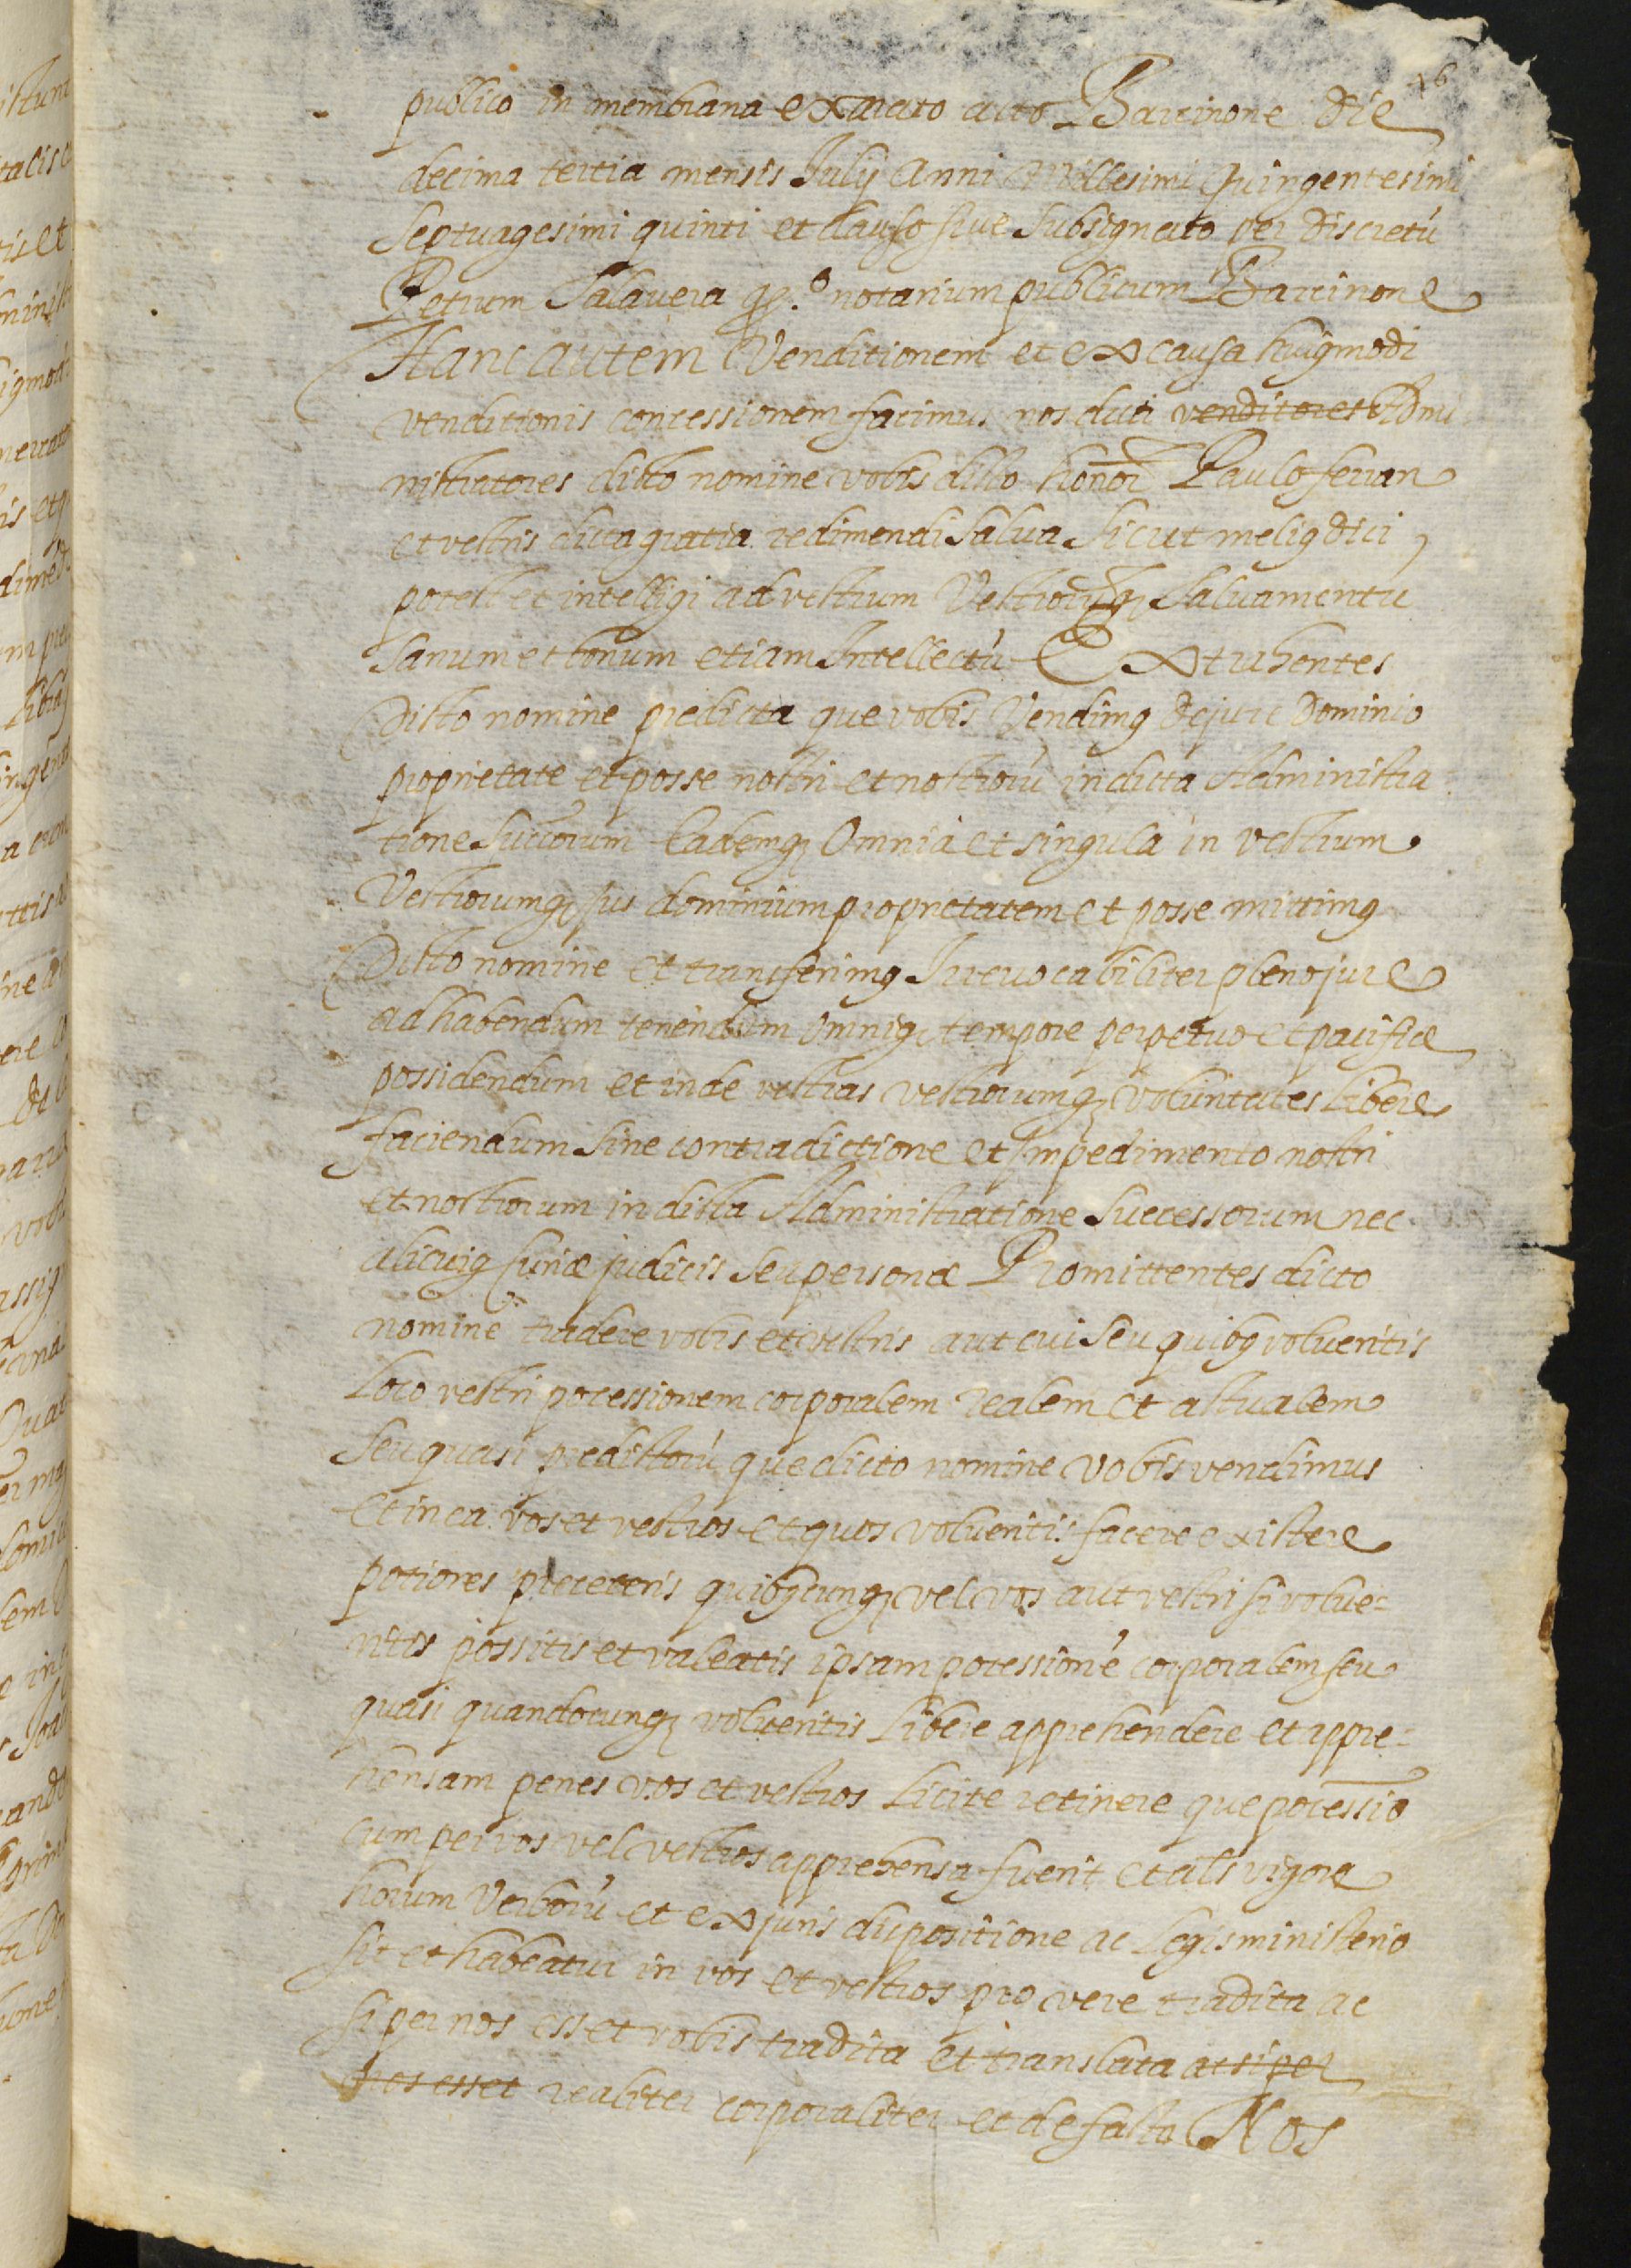 16
publico in membrana exarato acto Barcinone die
decima tertia mensis Julij Anni Millesimi Quingentesimi
septuagesimi quinti et clauso siue subsignato per discretũ
Petrum Talauera qº. notarium publicum Barcinone
Hanc autem Venditionem et ex causa huiꝰmodi
venditionis concessionem facimus nos dicti venditores Admi
nistratores dicto nomine vobis dicto honor Paulo ferran
et vestris dicta gratia redimendi salua sicut meliꝰ dici
potest et intelligi ad vestrum Vestrorũqꝫ saluamentũ
sanum et bonum etiam Intellectũ Extrahentes
Dicto nomine predicta que vobis Vendimꝰ de jure Dominio
proprietate et posse nostri et nostrorũ in dicta Administra
tione succorum Eademqꝫ Omnia et singula in vestrum
Vestrorumqꝫ jus dominium proprietatem et posse mittimꝰ
Dicto nomine et transferimꝰ Irreuocabiliter pleno jure
ad habendum tenendum Omniqꝫ tempore perpetuo et pacifice
possidendum et inde vestras vestrorumqꝫ voluntates Libere
faciendum sine contradictione et Impedimento nostri
et nostrorum in dicta Administratione successorum nec
alicuiꝰ curiæ judicis seu personæ Promittentes dicto
nomine tradere vobis et vestris aut cui seu quibꝰ volueritis
Loco vestri pocessionem corporalem realem et actualem
seu quasi predictorũ que dicto nomine vobis vendimus
Et in ea vos et vestros et quos volueritis facere existere
potiores preceteris quibꝰcunqꝫ vel vos aut vestri si volue=
ritis possitis et valeatis ipsam pocessionẽ corporalem seu
quasi quandocunqꝫ volueritis Libere apprehendere et appre=
hensam penes vos et vestros Licite retinere que pocessio
cum per vos vel vestros apprehensa fuerit et als vigore
horum Verborũ et ex juris dispositione ac Legis ministerio
sit et habeatur in vos et vestros pro vere tradita ac
si per nos esset vobis tradita et translata ac si per
nos esset realiter corporaliter et de facto Nos